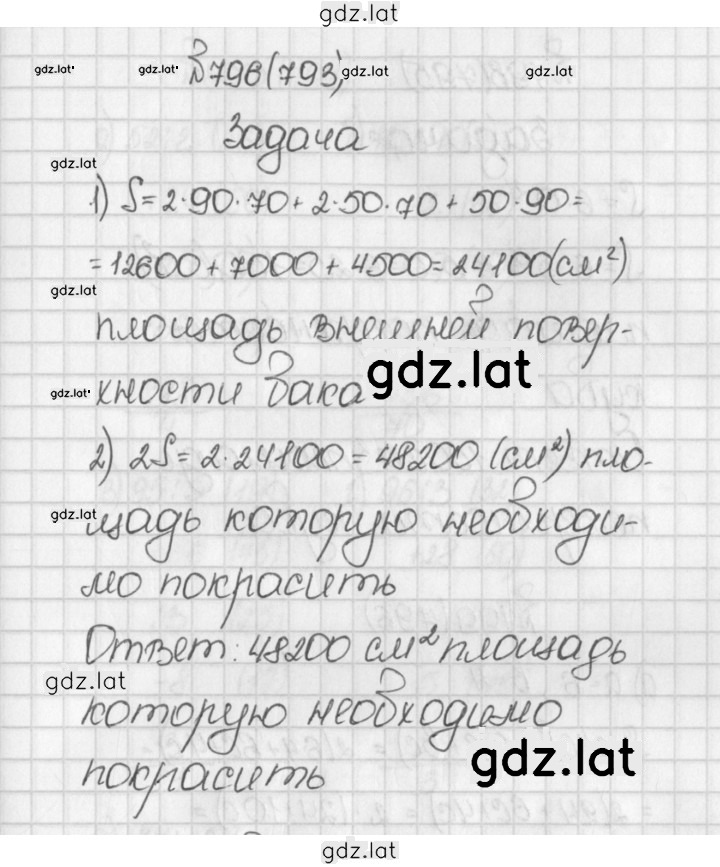 gdz.lat
gdz.lat gdz.lat №796(793) gdz.lat gdz.lat
Задача
gdz.lat
1) S=2·90·70+2·50·70+50·90=
=12600+7000+4500=24100(см²)
gdz.lat
площадь внешней повер-
хности бака
gdz.lat
gdz.lat
2) 2S=2·24100=48200 (см²) пло-
gdz.lat
щадь которую необходи-
мо покрасить
Ответ: 48200 см² площадь
gdz.lat
которую необходимо
gdz.lat
покрасить
gdz.lat